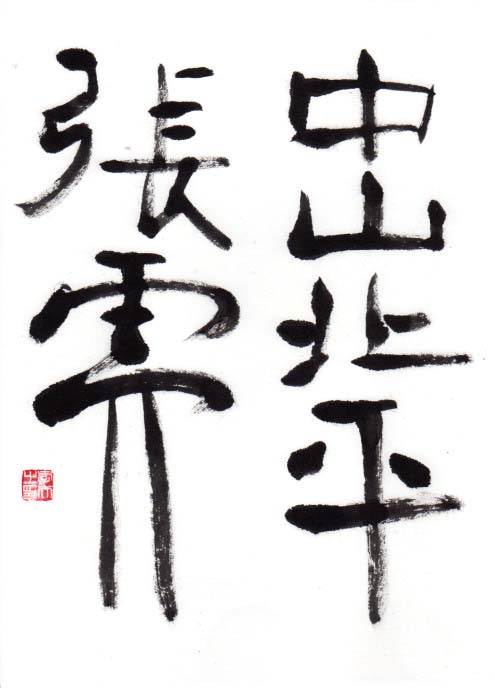 中山北平
張